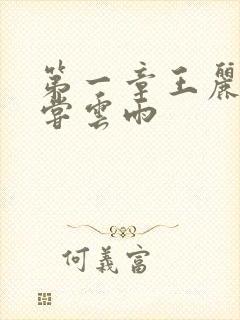 第一章王麗
嘗雲雨
何義富